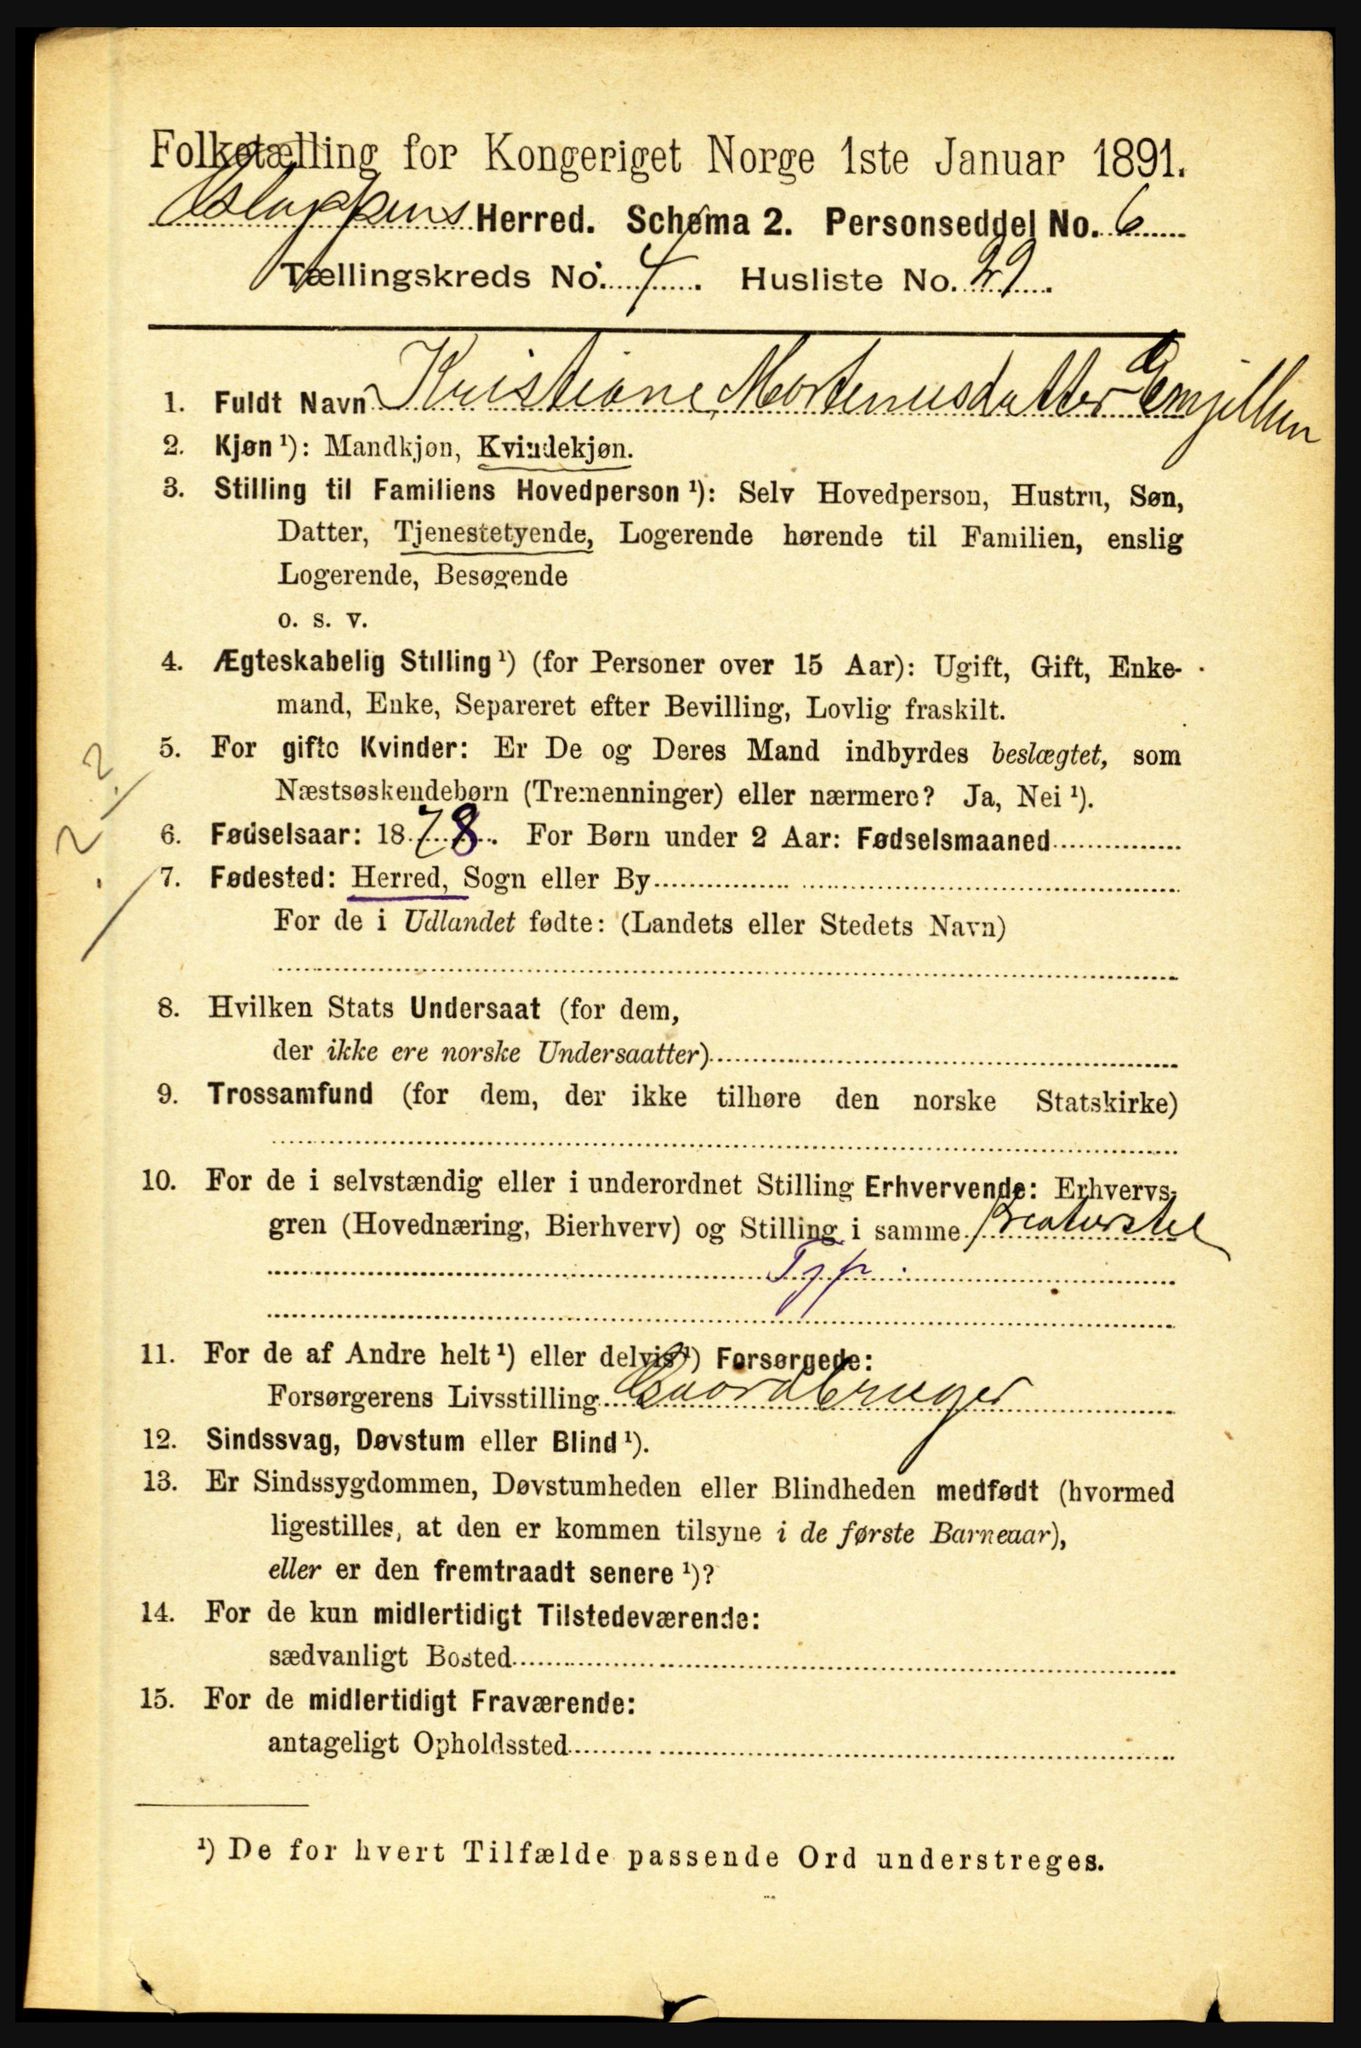 Folketælling for Kongeriget Norge 1ste Januar 1891.
Gloppens Herred. Schema 2. Personseddel No. 6
Tællingskreds No. 4. Husliste No. 29.
1. Fuldt Navn Kristiane Mortenusdatter
2. Kjøn ¹): Mandkjøn, Kvindekjøn.
3. Stilling til Familiens Hovedperson ¹): Selv Hovedperson, Hustru, Søn,
Datter, Tjenestetyende, Logerende hørende til Familien, enslig
Logerende, Besøgende
o. s. v.
4. Ægteskabelig Stilling ¹) (for Personer over 15 Aar): Ugift, Gift, Enke-
mand, Enke, Separeret efter Bevilling, Lovlig fraskilt.
5. For gifte Kvinder: Er De og Deres Mand indbyrdes beslægtet, som
Næstsøskendebørn (Tremenninger) eller nærmere? Ja, Nei ¹).
6. Fødselsaar: 1878. For Børn under 2 Aar: Fødselsmaaned
7. Fødested: Herred, Sogn eller By
For de i Udlandet fødte: (Landets eller Stedets Navn)
8. Hvilken Stats Undersaat (for dem,
der ikke ere norske Undersaatter)
9. Trossamfund (for dem, der ikke tilhøre den norske Statskirke)
10. For de i selvstændig eller i underordnet Stilling Erhvervende: Erhvervs-
gren (Hovednæring, Bierhverv) og Stilling i samme Kreaturstel
Tjp.
11. For de af Andre helt ¹) eller delvis ¹) Forsørgede:
Forsørgerens Livsstilling Gaardbruger
12. Sindssvag, Døvstum eller Blind ¹).
13. Er Sindssygdommen, Døvstumheden eller Blindheden medfødt (hvormed
ligestilles, at den er kommen tilsyne i de første Barneaar),
eller er den fremtraadt senere ¹)?
14. For de kun midlertidigt Tilstedeværende:
sædvanligt Bosted
15. For de midlertidigt Fraværende:
antageligt Opholdssted
¹) De for hvert Tilfælde passende Ord understreges.